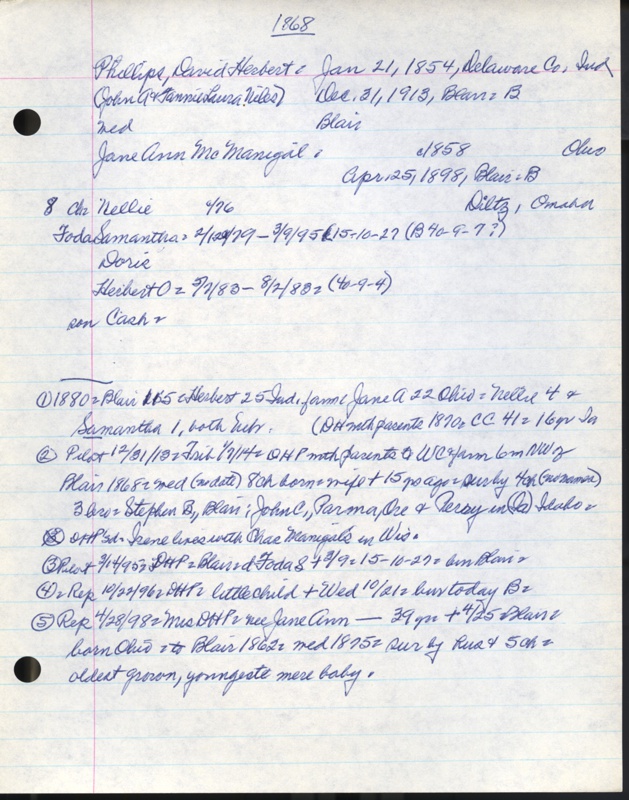 1868
Phillips, David Herbert = Jan 21, 1854, Delaware Co, Ind
(John A & Fannie Laura Niles) Dec. 31, 1913, Blair = B
med Blair
Jane Ann McManigal = c1858 Ohio
Apr 25, 1898, Blair = B
8 ch: Nellie 4/76 Diltz, Omaha
Foda Samantha = 79 - 3/9/95 15-10-27 (B 40-9-7?)
Doris
Herbert O = 5/7/83 - 8/2/83 = (40-9-4)
son Cash =
① 1880 = Blair 115 = Herbert 25 Ind, farm = Jane A 22 Ohio = Nellie 4 &
Samantha 1, both Nebr. (DH with parents 1870 = CC 41 = 16 yr Ia
② Pilot 12/31/13 = Trib 1/7/14 = DHP with parents to WC & farm 6 m NW of
Blair 1868 = med (no date) 8 ch born = wife + 15 yr ago = sur by 4 ch (no names)
3 bro = Stephen B, Blair; John C, Parma, Ore & Percy in Idaho =
DHP's d = Irene lives with Chas Manigal's in Wis.
③ Pilot 3/14/95 = DHP = Blair = d Foda S + 3/9 = 15-10-27 = brn Blair =
④ = Rep 10/22/96 = DHP = little child + Wed 10/21 = bur today B =
⑤ Rep 4/28/98 = Mrs DHP = nee Jane Ann — 39 yr + 4/25 = Blair =
born Ohio = to Blair 1862 = med 1875 = sur by hus & 5 ch =
oldest grown, youngest a mere baby.